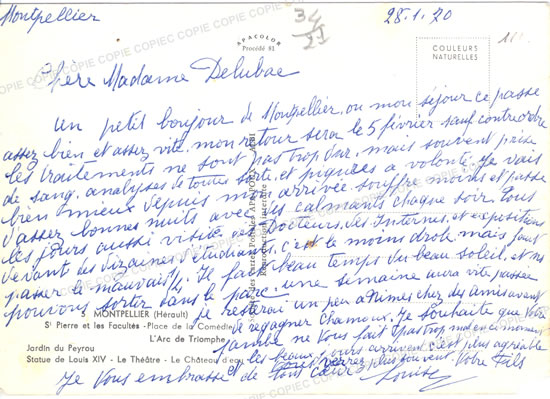 Montpellier
28.1.70
34
APACOLOR
Procédé 81
COULEURS
NATURELLES
COPIE COPIE COPIE COPIE COPIE
Chère Madame Delubac
Un petit bonjour de Montpellier, ou mon séjour ce passe
assez bien et assez vite. mon retour sera le 5 février sauf contre ordre
les traitements ne sont pas trop dur, mais souvent prise
de sang, analyses de toutes sorte, et piqures a volonté. Je vais
bien mieux depuis mon arrivée. souffre moins et passe
d'assez bonnes nuits avec des calmants chaque soir. Tous
les jours aussi visite des Docteurs, des Internes, et expositions
devant des dizaines d'étudiants, c'est le moins drole mais faut
passer le mauvais. Je fais beau temps du beau soleil, et ns
pouvons sortir dans le parc une semaine aura vite passée
je resterai un peu a Nimes chez des amis avant
de regagner Chamoux. Je souhaite que Votre
jambe ne Vous fait pas trop mal en ce moment
et les beaux jours arrivent c'est plus agréable
verrez plus souvent. Votre Fils
Je Vous embrasse de tous cœur
Louise
MONTPELLIER (Hérault)
St Pierre et les Facultés - Place de la Comédie
L'Arc de Triomphe
Jardin du Peyrou
Statue de Louis XIV - Le Théâtre - Le Château d'eau
Reproduction interdite